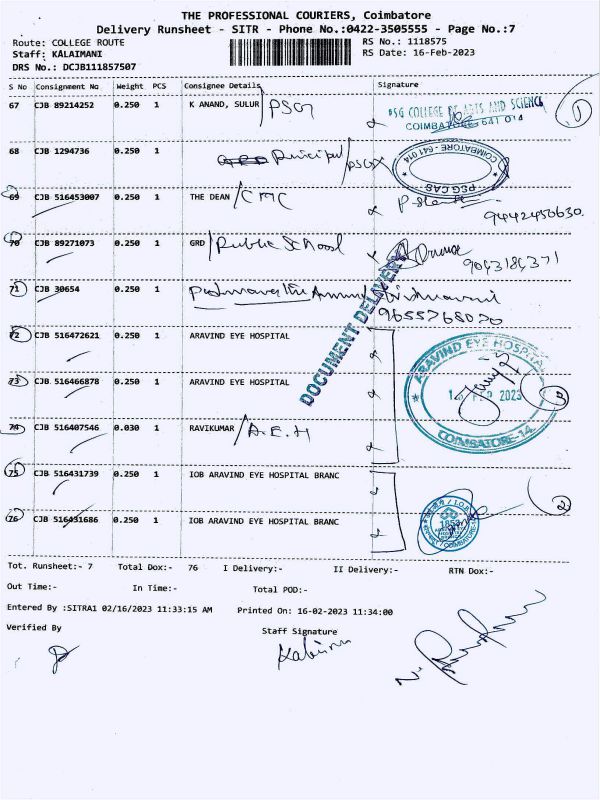 THE PROFESSIONAL COURIERS, Coimbatore
Delivery Runsheet - SITR - Phone No.:0422-3505555 - Page No.:7
Route: COLLEGE ROUTE
Staff: KALAIMANI
DRS No.: DCJB111857507
RS No.: 1118575
RS Date: 16-Feb-2023
S No Consignment No Weight PCS Consignee Details Signature
67 CJB 89214252 0.250 1 K ANAND, SULUR / PSG
PSG COLLEGE OF ARTS AND SCIENCE
COIMBATORE-641 014
1
68 CJB 1294736 0.250 1 Principal / PSG
COIMBATORE - 641 014
PSG CAS
69 CJB 516453007 0.250 1 THE DEAN / CMC
9442450630.
70 CJB 89271073 0.250 1 GRD / Public School
9043184371
71 CJB 30654 0.250 1
9655768070
DOCUMENT DELIVERY
72 CJB 516472621 0.250 1 ARAVIND EYE HOSPITAL
73 CJB 516466878 0.250 1 ARAVIND EYE HOSPITAL
ARAVIND EYE HOSPITAL
FEB 2023
COIMBATORE-14
3
74 CJB 516407546 0.030 1 RAVIKUMAR / A.E.H
75 CJB 516431739 0.250 1 IOB ARAVIND EYE HOSPITAL BRANC
2
76 CJB 516431686 0.250 1 IOB ARAVIND EYE HOSPITAL BRANC
Tot. Runsheet:- 7 Total Dox:- 76 I Delivery:- II Delivery:- RTN Dox:-
Out Time:- In Time:- Total POD:-
Entered By :SITRA1 02/16/2023 11:33:15 AM Printed On: 16-02-2023 11:34:00
Verified By
Staff Signature